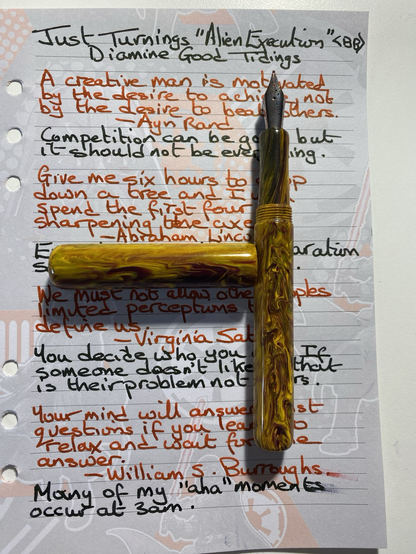 Just Turnings "Alien Execution" <BB>
Diamine Good Tidings
A creative man is motivated
by the desire to achi not
by the desire to beat others.
—Ayn Rand
Competition can be go but
it should not be eve ing.
Give me six hours to op
down a tree and I
spend the first four
sharpening the axe
—Abraham Linco
E aration
s
We must not allow othe ples
limited perceptions
define us
—Virginia Sat
You decide who you If
someone doesn't like that
is their problem not rs.
Your mind will answer st
questions if you lear to
relax and wait for e
answer.
—William S. Burroughs
Many of my "aha" moments
occur at 3am.